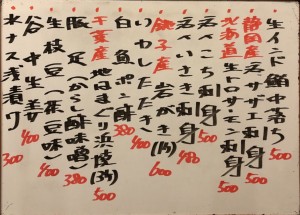 生インド鮪中落ち 500
静岡産 活サザエ刺身 500
北海道 生トロサーモン刺身 500
活いさき刺身 480
活いこち刺身 500
銚子産 岩がき(1ケ) 600
いわしたたき 400
白魚ポン酢 380
千葉産 地はまぐり浜焼(3ケ) 500
豚足(からし酢味噌) 380
生枝豆(茶豆味) 400
谷中生姜 400
水ナス浅漬け 300